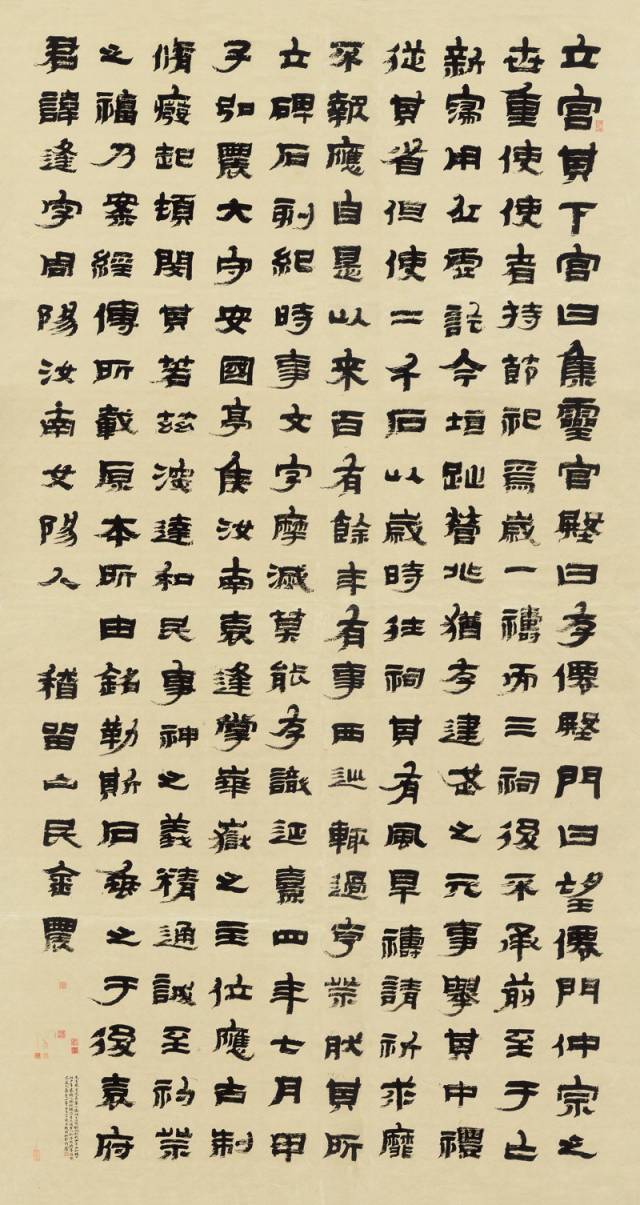 立宮其下宮曰集靈宮殿曰存僊殿門曰望僊門仲宗之
世重使使者持節祀焉歲一禱而三祠後不承前至于亡
新寖用丘虛訖今垣趾營兆猶存建武之元事舉其中禮
從其省但使二千石以歲時往祠其有風旱禱請祈求靡
不報應自是以來百有餘年有事西巡輒過亨祭然其所
立碑石刻紀時事文字摩滅莫能存識延熹四年七月甲
子弘農大守安國亭侯汝南袁逢掌華嶽之主位應古制
脩癈起頓閔其若茲深達和民事神之義精通誠至礿祭
之福乃案經傳所載原本所由銘勒斯石垂之于後袁府
君諱逢字周陽汝南女陽人 稽留山民金農